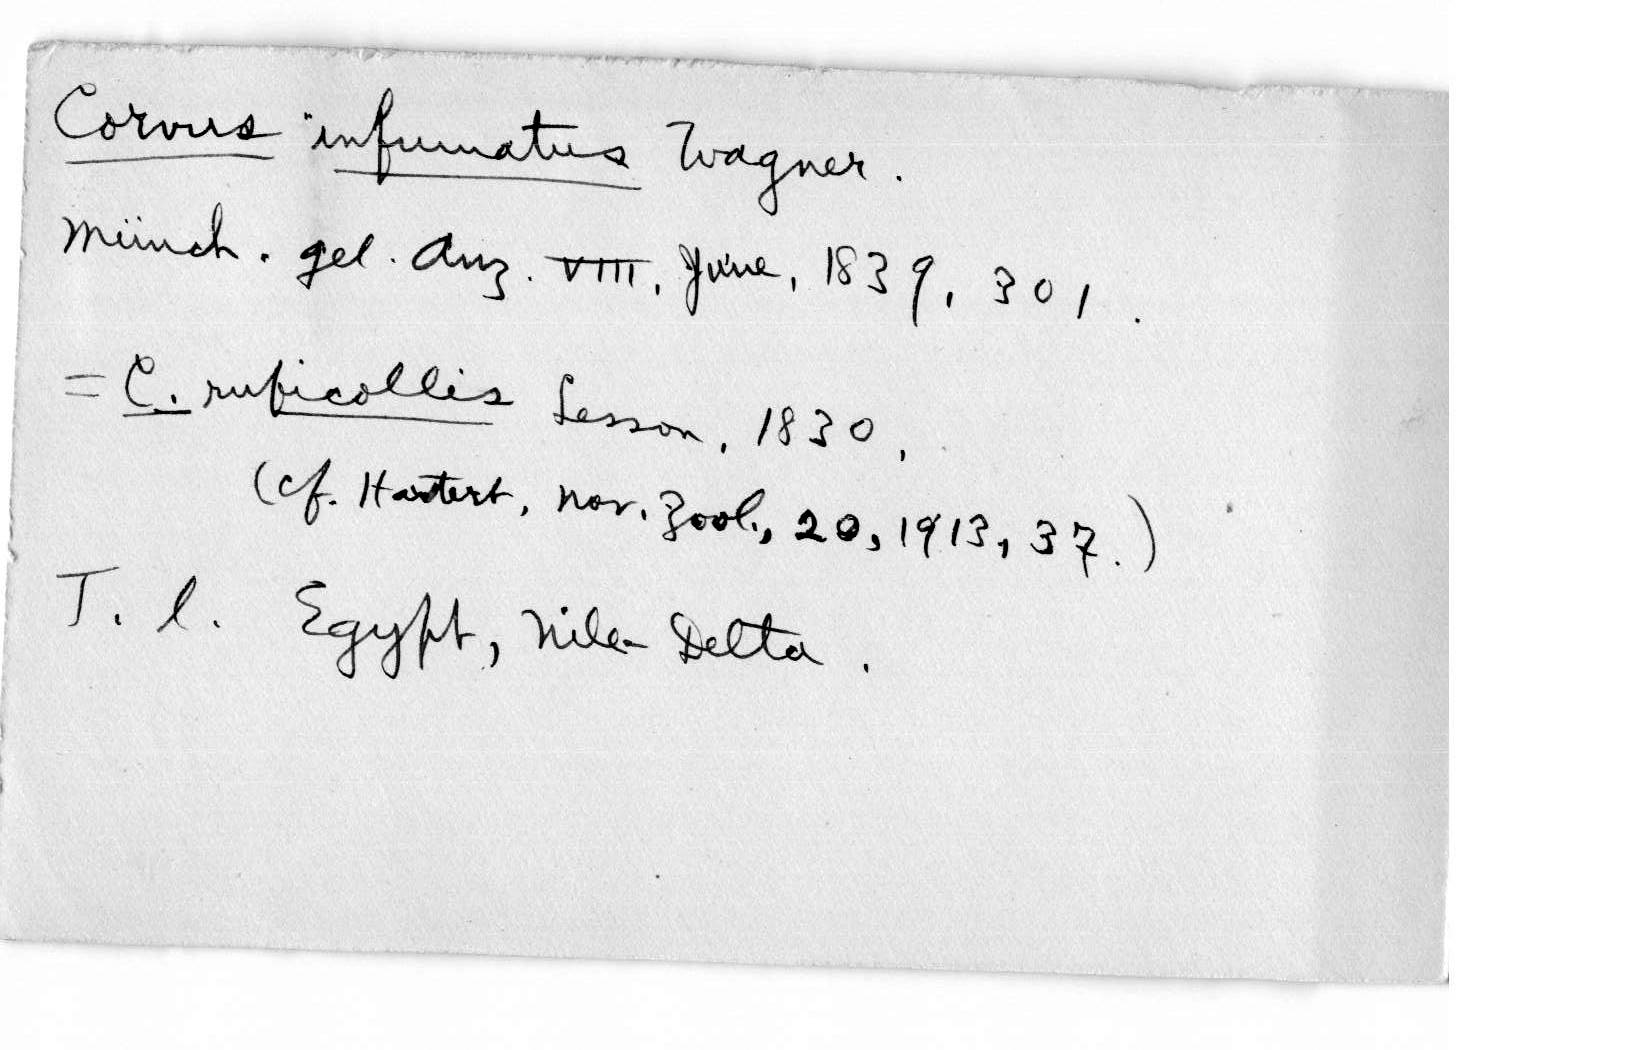 Corvus infumatus Wagner.
Münch. gel. Anz. VIII, June, 1839, 301.
= C. ruficollis Lesson, 1830,
(cf. Hartert, Nov. Zool., 20, 1913, 37.)
T. l. Egypt, Nile Delta.